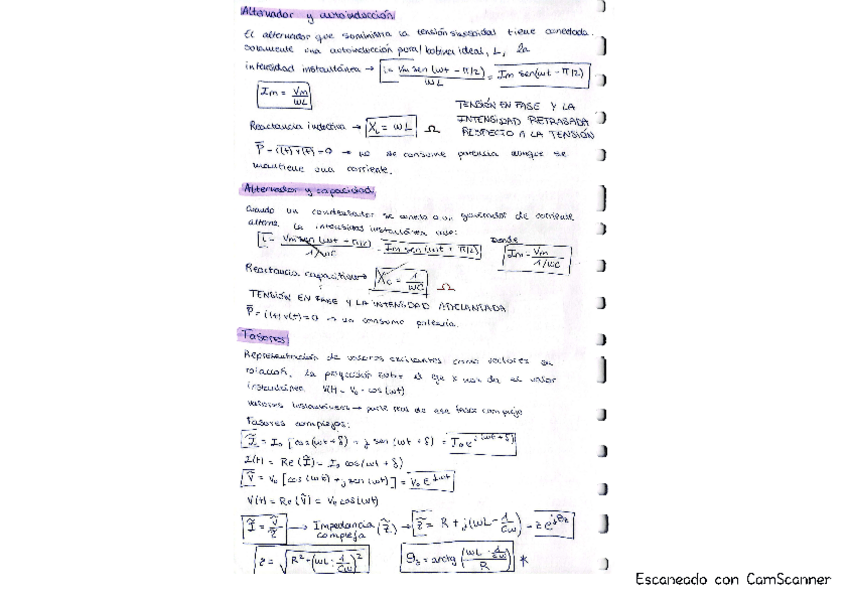 Alternador y autoinducción
El alternador que suministra la tensión sinusoidal tiene conectada
solamente una autoinducción pura/bobina ideal, L, la
intensidad instantánea → i = Vm sen (ωt - π/2) / ωL = Im sen(ωt - π/2)
Im = Vm / ωL
TENSIÓN EN FASE Y LA
INTENSIDAD RETRASADA
RESPECTO A LA TENSIÓN
Reactancia inductiva → XL = ωL Ω
P̄ = i(t) v(t) = 0 → no se consume potencia aunque se
mantiene una corriente.
Alternador y capacidad
Cuando un condensador se conecta a un generador de corriente
alterna. La intensidad instantánea
i = Vm sen (ωt - π/2) / 1/ωC = Im sen (ωt + π/2) Donde Im = Vm / 1/ωC
Reactancia capacitiva → Xc = 1 / ωC Ω
TENSIÓN EN FASE Y LA INTENSIDAD ADELANTADA
P̄ = i(t) v(t) = 0 → no consume potencia.
Fasores
Representación de como vectores en
rotación. La proyección sobre el eje x nos da el valor
instantáneo. V(t) = V₀ · cos(ωt)
valores instantáneos → parte real de ese fasor complejo
Fasores complejos:
Ĩ = I₀ [cos(ωt + δ) = j sen (ωt + δ) = I₀ e^j(ωt + δ)
I(t) = Re (Ĩ) = I₀ cos(ωt + δ)
Ṽ = V₀ [cos(ωt) + j sen(ωt)] = V₀ e^jωt
V(t) = Re(Ṽ) = V₀ cos(ωt)
Ĩ = Ṽ / Z̃ → Impedancia compleja (Z̃) → Z̃ = R + j(ωL - 1/Cω) = z e^jθz
z = √R² + (ωL - 1/Cω)² θz = arctg (ωL - 1/Cω / R) *
Escaneado con CamScanner